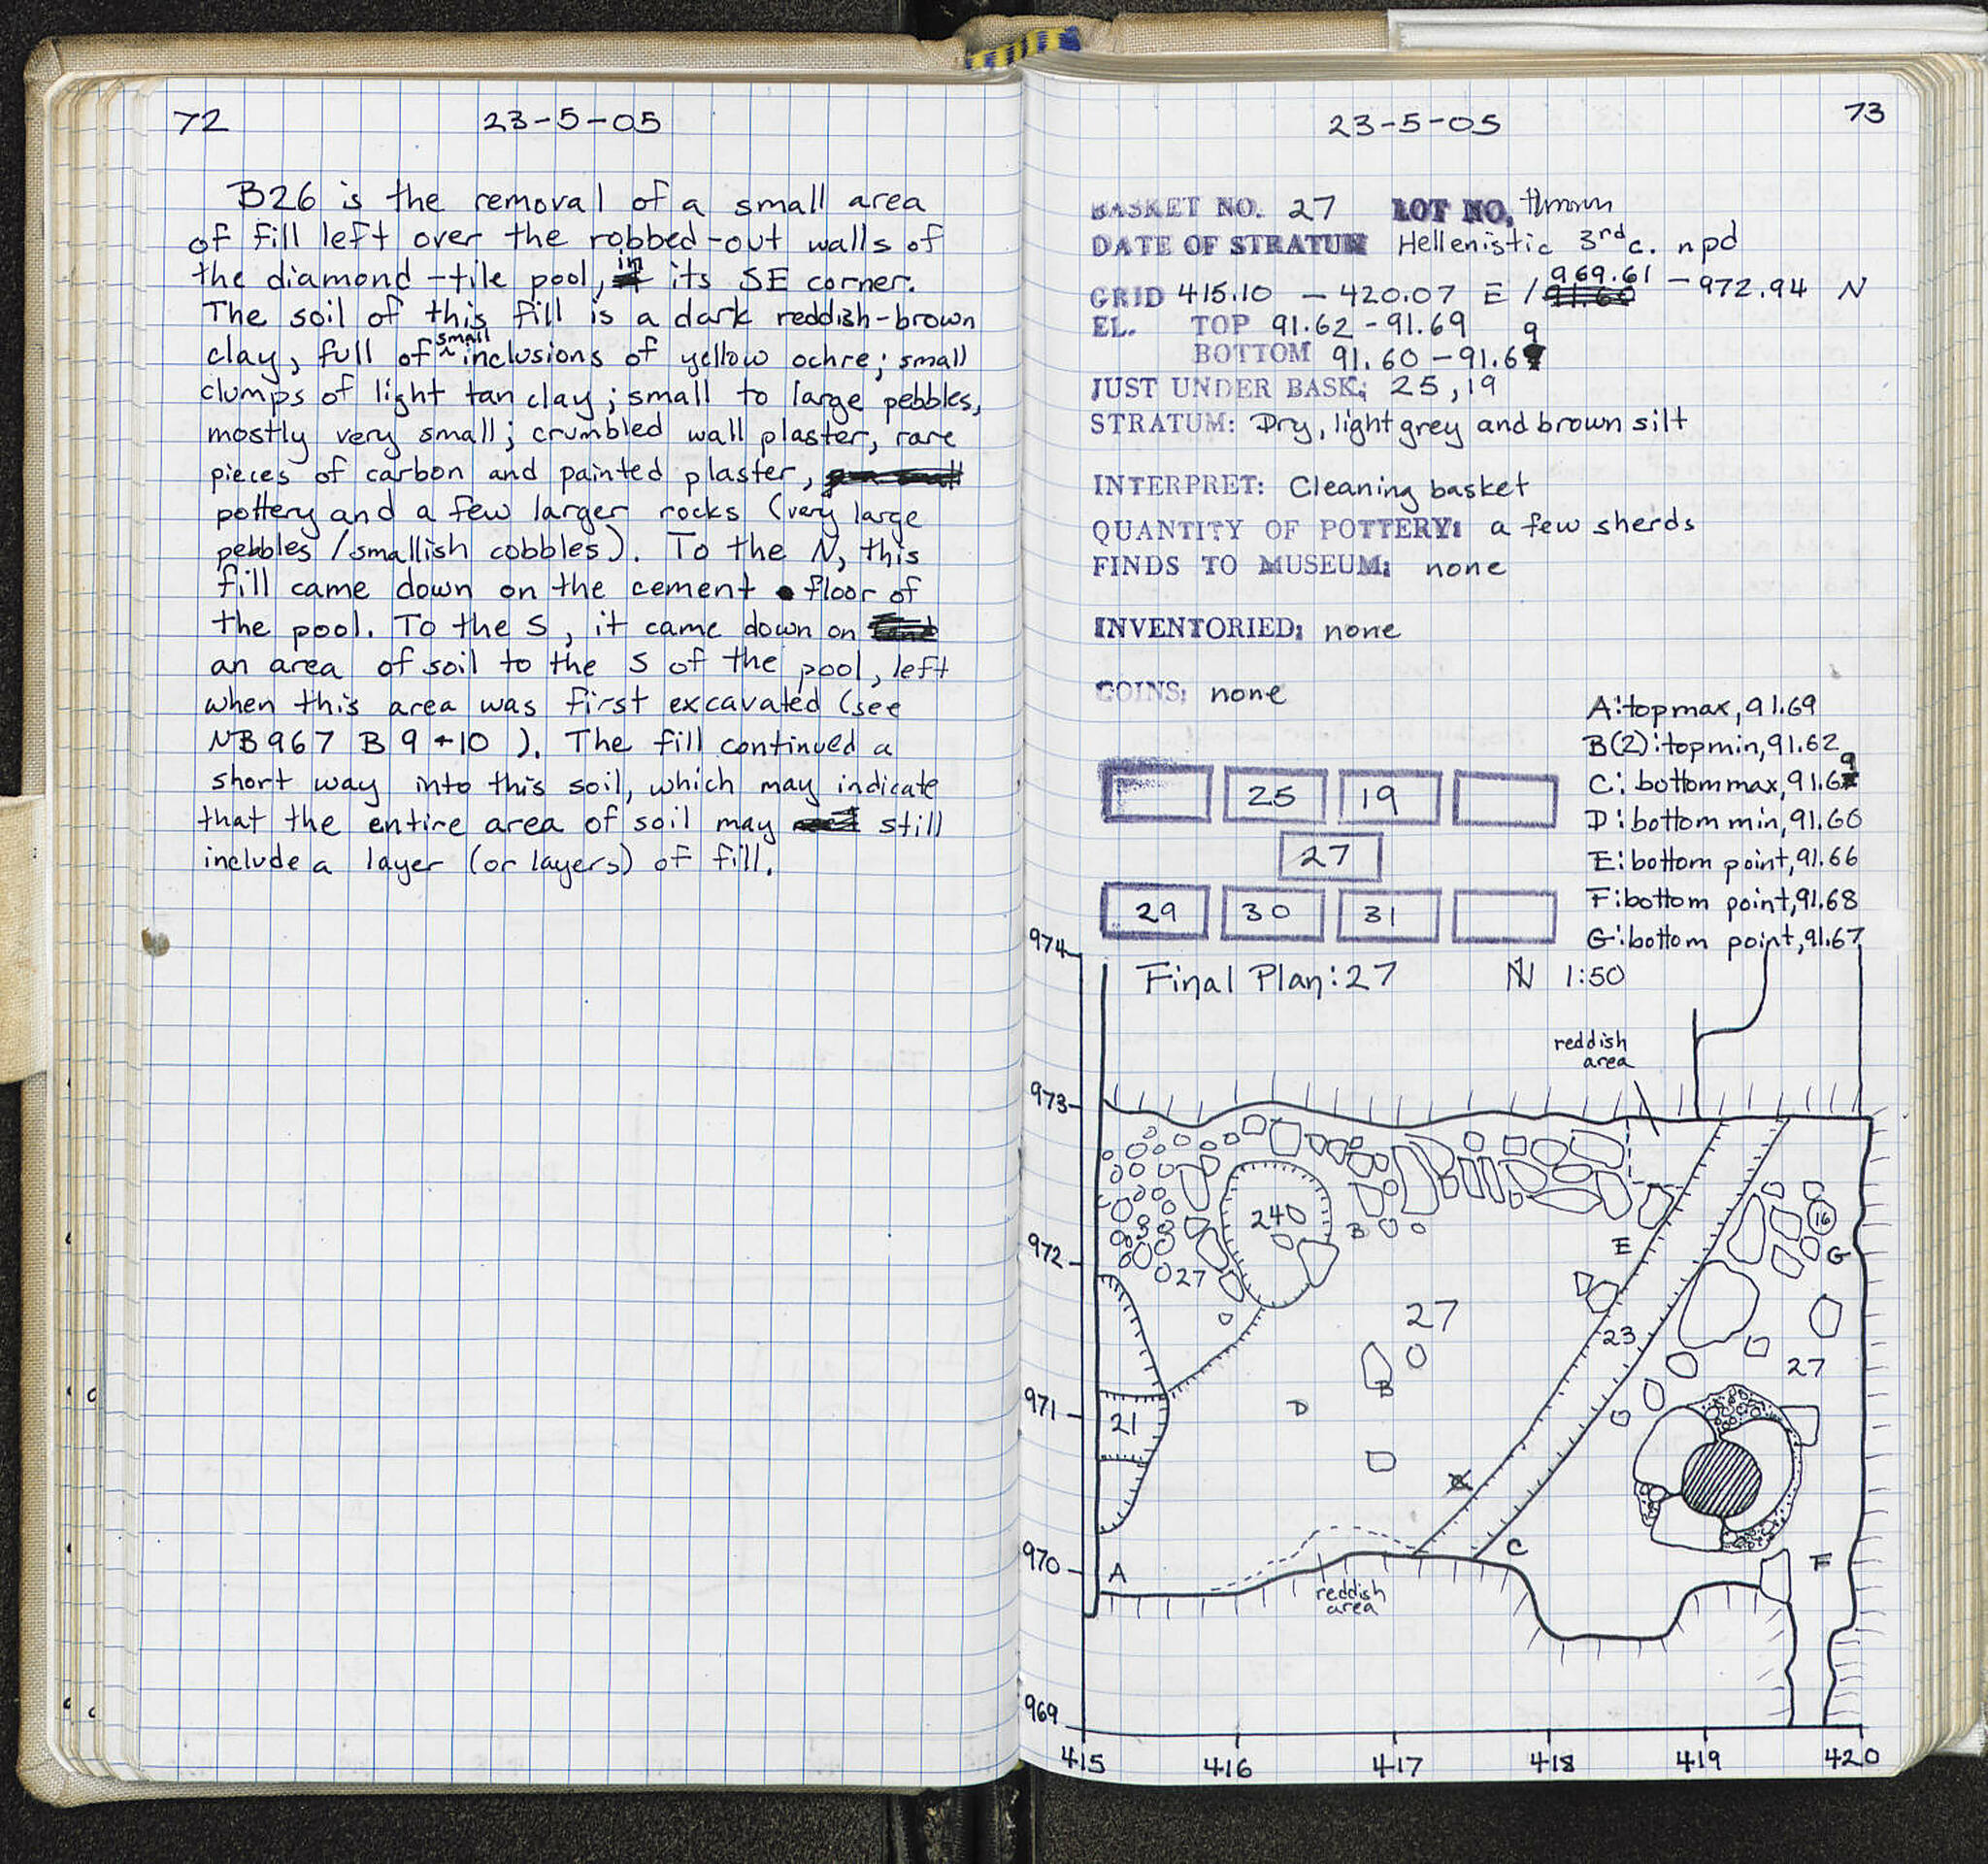 72
23-5-05
B26 is the removal of a small area
of fill left over the robbed-out walls of
the diamond-tile pool, in its SE corner.
The soil of this fill is a dark reddish-brown
clay, full of small inclusions of yellow ochre; small
clumps of light tan clay; small to large pebbles,
mostly very small; crumbled wall plaster, rare
pieces of carbon and painted plaster,
pottery and a few larger rocks (very large
pebbles/smallish cobbles). To the N, this
fill came down on the cement floor of
the pool. To the S, it came down on
an area of soil to the S of the pool, left
when this area was first excavated (see
NB967 B9+10). The fill continued a
short way into this soil, which may indicate
that the entire area of soil may still
include a layer (or layers) of fill.
23-5-05
73
BASKET NO. 27 LOT NO. thrown
DATE OF STRATUM Hellenistic 3rd c. npd
GRID 415.10 - 420.07 E / 969.61 - 972.94 N
EL. TOP 91.62-91.69
BOTTOM 91.60-91.69
JUST UNDER BASK: 25, 19
STRATUM: Dry, light grey and brown silt
INTERPRET: Cleaning basket
QUANTITY OF POTTERY: a few sherds
FINDS TO MUSEUM: none
INVENTORIED: none
COINS: none
A: top max, 91.69
B(2): top min, 91.62
C: bottom max, 91.69
D: bottom min, 91.60
E: bottom point, 91.66
F: bottom point, 91.68
G: bottom point, 91.67
25 19
27
29 30 31
Final Plan: 27 N 1:50
974
reddish
area
973
240
B
16
972
E
G
27
27
23
27
B
971
D
21
970
A
C
F
reddish
area
969
415 416 417 418 419 420